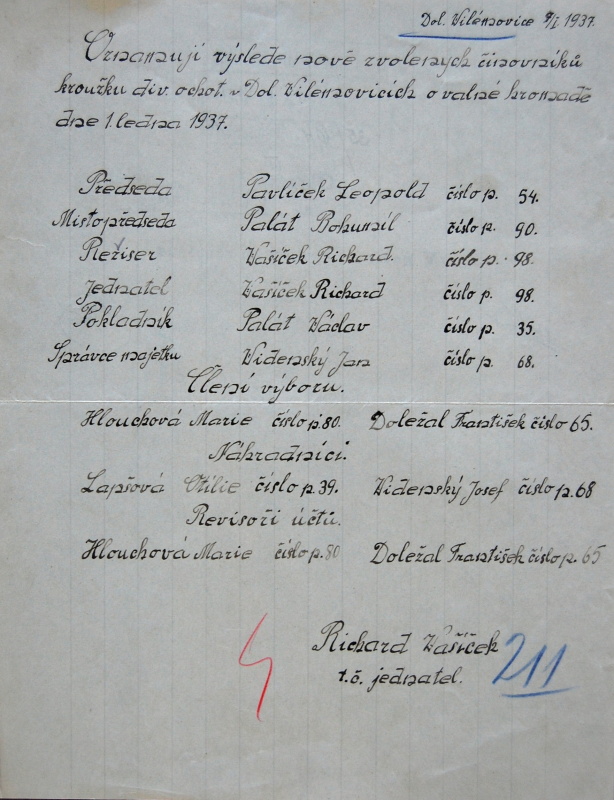 Dol. Vilémovice 9/I 1937.
Oznamují výslede nově zvolených činovníků
kroužku div. ochot. v Dol. Vilémovicích o valné hromadě
dne 1. ledna 1937.
Předseda Pavlíček Leopold číslo p. 54.
Místopředseda Palát Bohumil číslo p. 90.
Režiser Vašíček Richard. číslo p. 98.
Jednatel Vašíček Richard číslo p. 98.
Pokladník Palát Václav číslo p. 35.
Správce majetku Videnský Jan číslo p. 68.
Členi výboru.
Hlouchová Marie číslo p. 80. Doležal František číslo 65.
Náhradníci.
Lapšová Otilie číslo p. 39. Videnský Josef číslo p. 68
Revisoři účtů.
Hlouchová Marie číslo p. 80 Doležal František číslo p. 65
Richard Vašíček
t.č. jednatel.
211